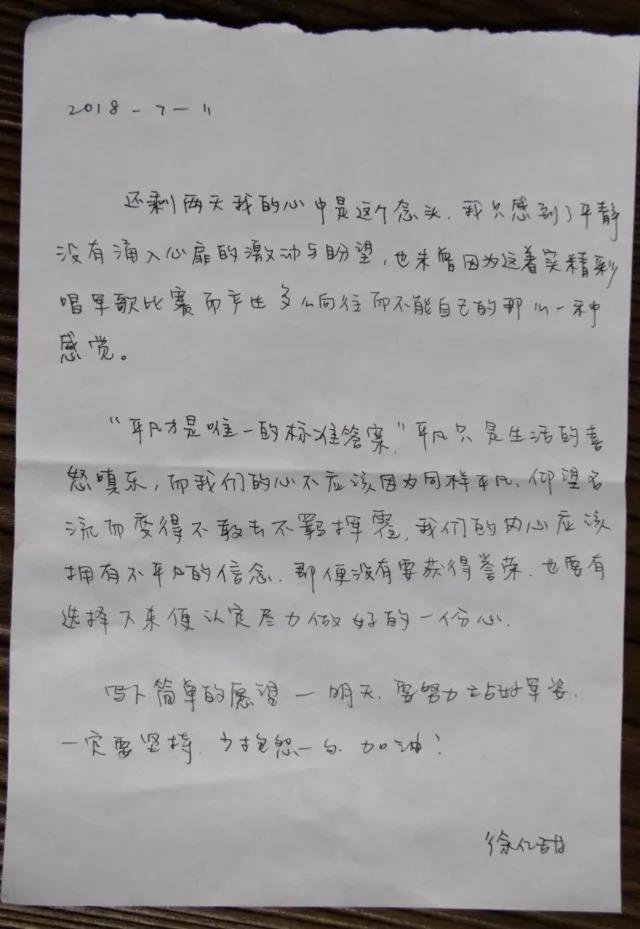 2018-7-11
还剩两天我的心中是这个念头，我只感到了平静
没有涌入心扉的激动与盼望，也未曾因为这着实精彩
唱军歌比赛而产生多么向往而不能自己的那么一种
感觉。
“平凡才是唯一的标准答案”平凡只是生活的喜
怒嗔乐，而我们的心不应该因为同样平凡、仰望名
流而变得不敢去不羁挥霍，我们的内心应该
拥有不平凡的信念，即便没有要获得誉荣，也要有
选择下来便认定尽力做好的一份心.
写下简单的愿望—明天，要努力站好军姿，
一定要坚持，少抱怨一句，加油！
徐亿甜